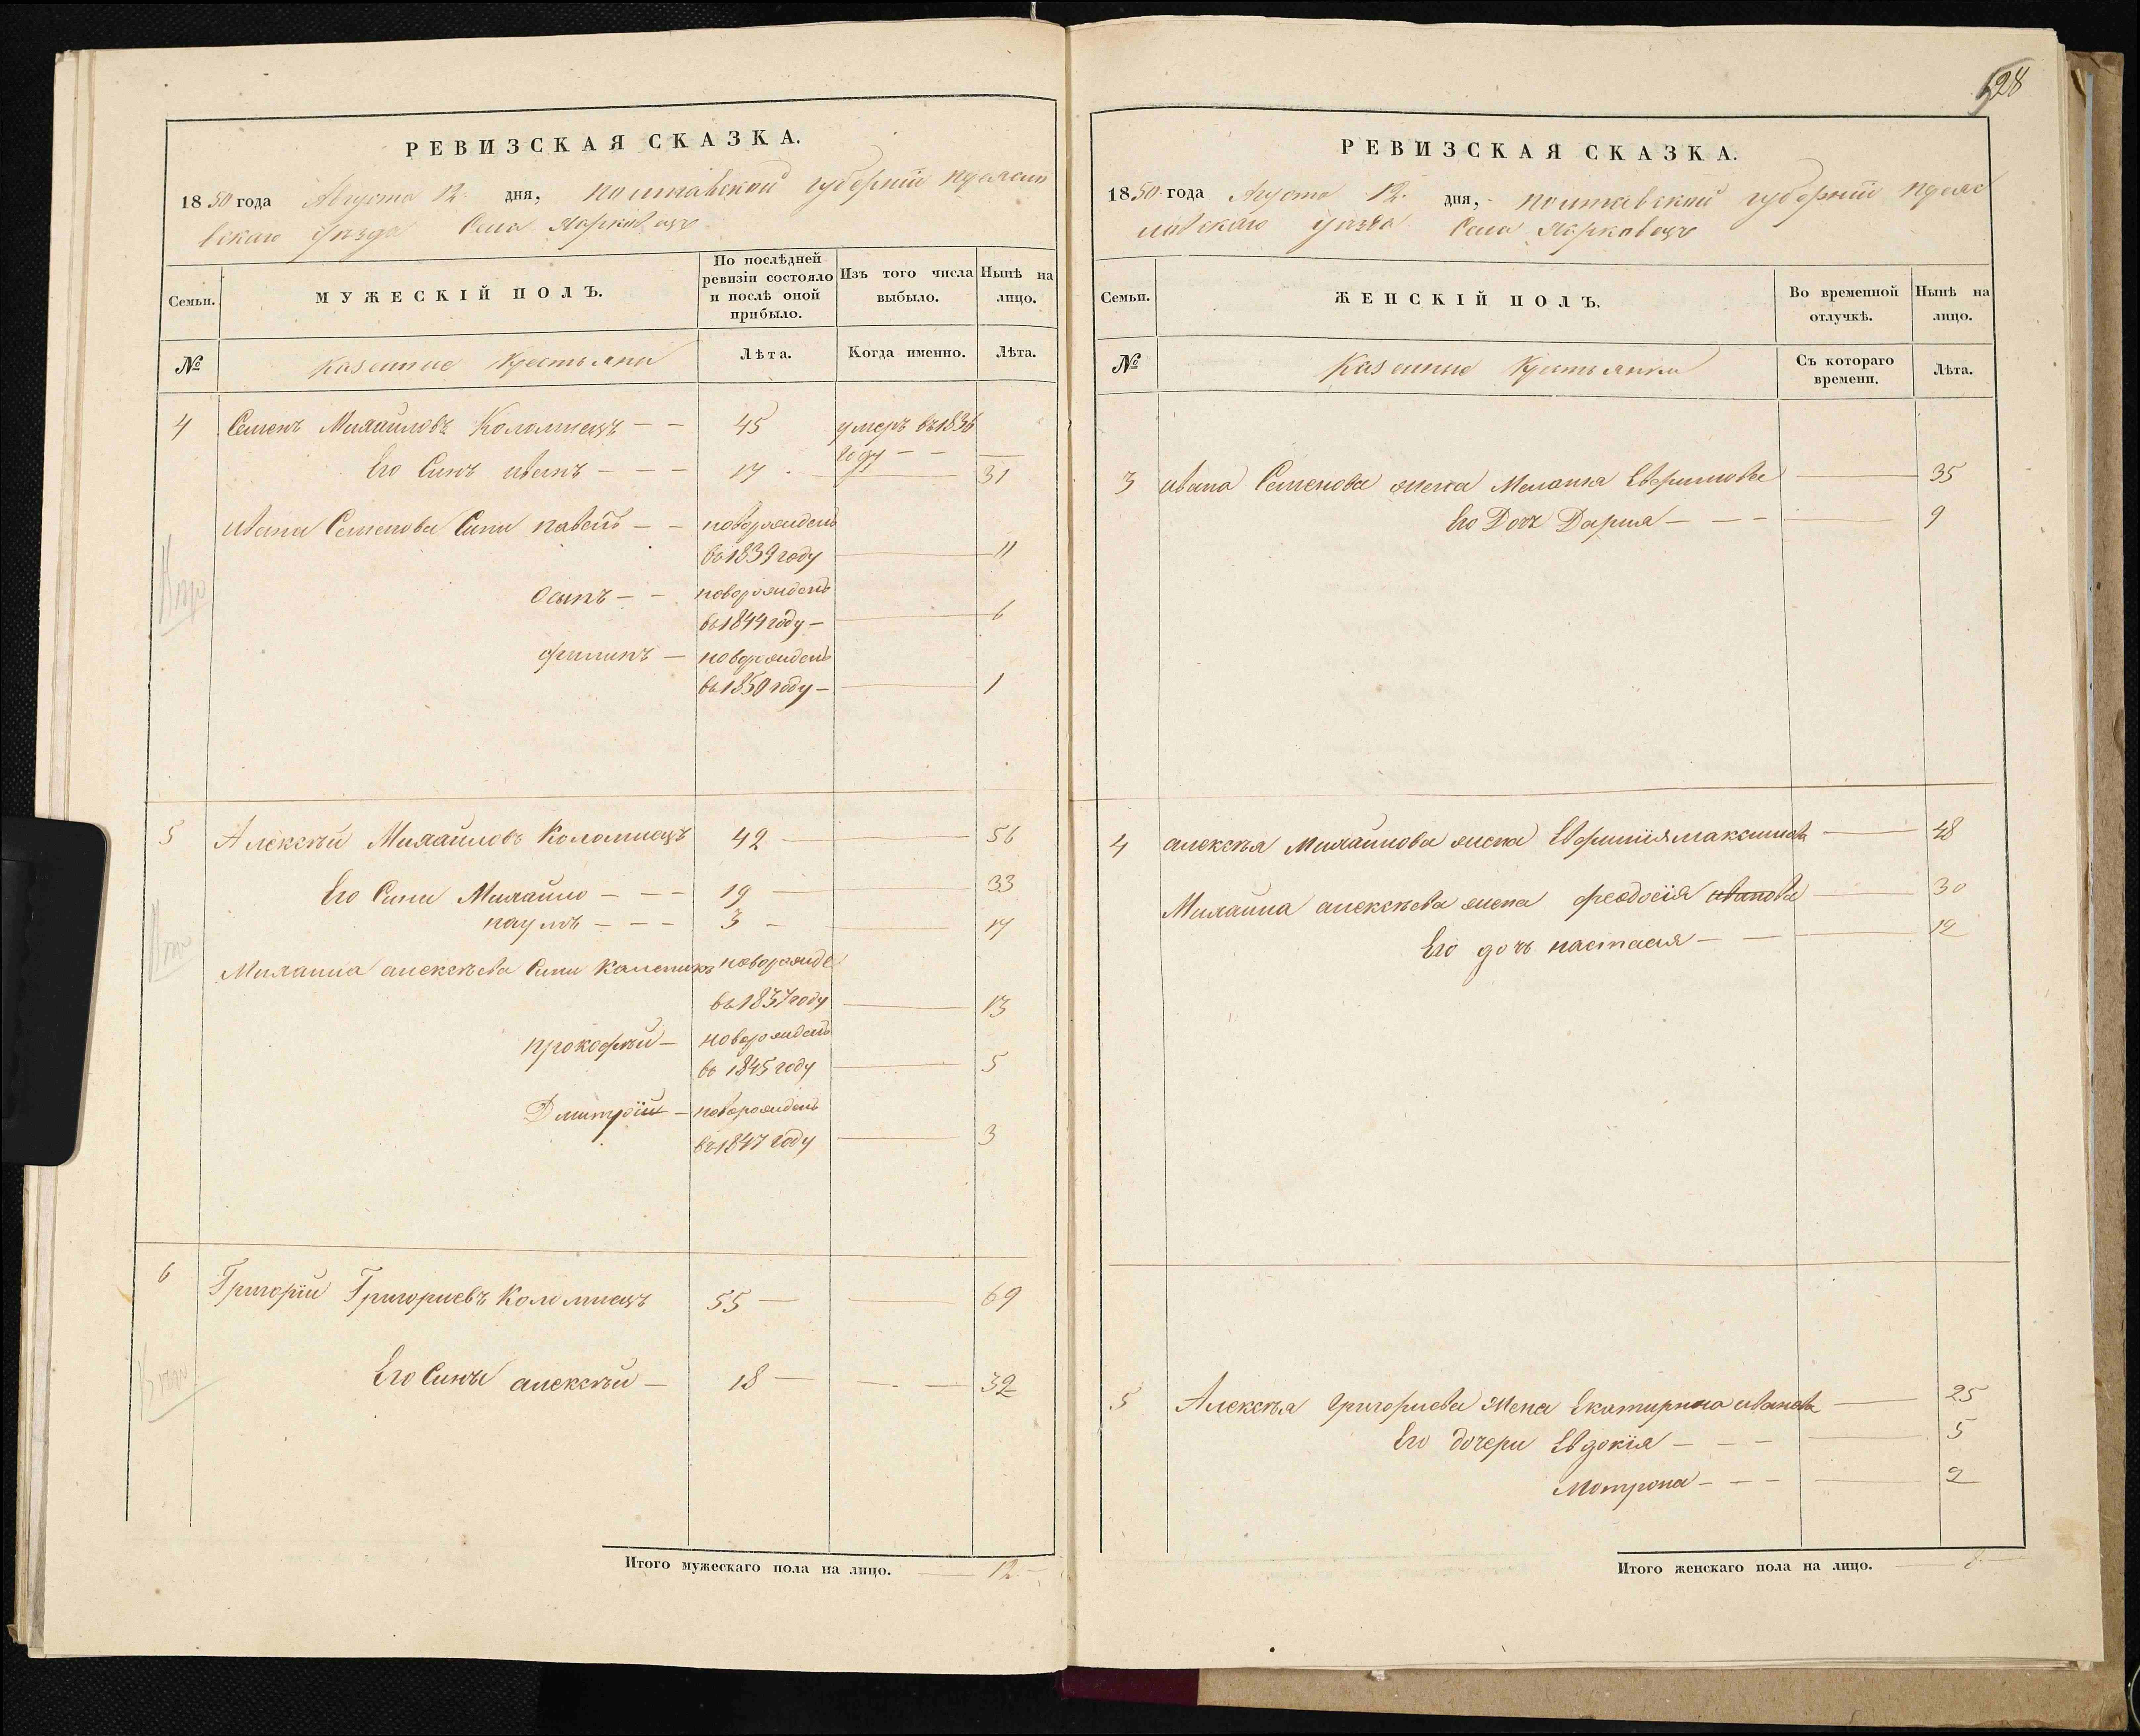 РЕВИЗСКАЯ СКАЗКА.
1850 года Августа 12. дня, полтавской губерніи переясла
вскаго уезда Села Яркавецъ
Семьи.
МУЖЕСКІЙ ПОЛЪ.
По послѣдней ревизіи состояло и послѣ оной прибыло.
Изъ того числа выбыло.
Нынѣ на лицо.
№
Казенные Крестьяни
Лѣта.
Когда именно.
Лѣта.
4 Семенъ Михайловъ Коломиецъ — — 45 умеръ въ 1836
году — —
Его Синъ иванъ — — — 17 31
ивана Семенова Сини павелъ — — новорожденъ
въ 1839 году 11
Осипъ — — новорожденъ
въ 1844 году — 6
филипъ — новорожденъ
въ 1850 году — 1
5 Алексѣй Михайловъ Коломиецъ 42 56
Его Сини Михайло — — — 19 33
наумъ — — — 3 17
Михаила алексѣева Сини Каленикъ новорожде
въ 1837 году 13
прокофѣй — новорожденъ
въ 1845 году 5
Дмитрѿй — новорожденъ
въ 1847 году 3
6 Григорій Григориевъ Коломиецъ 55 — 69
Его Синъ алексѣй — 18 — 32
Итого мужескаго пола на лицо. 12
128
РЕВИЗСКАЯ СКАЗКА.
1850 года Августа 12. дня, полтавской губерніи переяс
лавскаго уезда Села Яркавецъ
Семьи.
ЖЕНСКІЙ ПОЛЪ.
Во временной отлучкѣ.
Нынѣ на лицо.
№
Казенные Крестьянки
Съ котораго времени.
Лѣта.
3 ивана Семенова жена Меланія Евфимова 35
Его Дочъ Дария — — — 9
4 алексѣя Михайлова жена Евфимія максимова 48
Михаила алексѣева жена феодосія иванова 30
Его дочъ настася — — 12
5 Алексѣя Григориева Жена Екатирина иванова 25
Его дочери Евдокія — — — 5
Мотрона — — — 2
Итого женскаго пола на лицо. 8